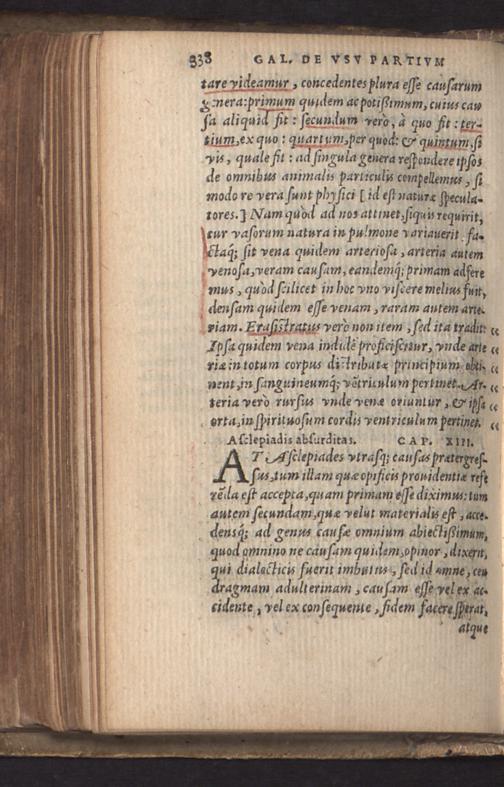 338 GAL. DE VSV PARTIVM
tare videamur, concedentes plura esse causarum
genera: primum quidem ac potißimum, cuius cau
sa aliquid fit: secundum verò, à quo fit: ter-
tium, ex quo: quartum, per quod: & quintum, si
vis, quale fit: ad singula genera respondere ipsos
de omnibus animalis particulis compellemus, si
modo re vera sunt physici [id est naturæ specula-
tores.] Nam quòd ad nos attinet, siquis requirit,
cur vasorum natura in pulmone variauerit, fa-
ctaq́; sit vena quidem arteriosa, arteria autem
venosa, veram causam, eandemq́; primam adfere
mus, quòd scilicet in hoc vno viscere melius fuit,
densam quidem esse venam, raram autem arte-
riam. Erasistratus verò non item, sed ita tradit: “
Ipsa quidem vena indidē proficiscitur, vnde arte “
riæ in totum corpus distributæ principium obti- “
nent, in sanguineumq́; vētriculum pertinet. Ar- “
teria verò rursus vnde venæ oriuntur, & ipsa “
orta, in spirituosum cordis ventriculum pertinet. “
Asclepiadis absurditas. CAP. XIII.
AT Asclepiades vtrasq́; causas prætergres-
sus, tum illam quæ opificis prouidentiæ refe
rēda est accepta, quam primam esse diximus: tum
autem secundam, quæ velut materialis est, acce-
densq́; ad genus causæ omnium abiectißimum,
quod omnino ne causam quidem, opinor, dixerit,
qui dialecticis fuerit imbutus, sed id omne, ceu
dragmam adulterinam, causam esse vel ex ac-
cidente, vel ex consequente, fidem facere sperat,
atque